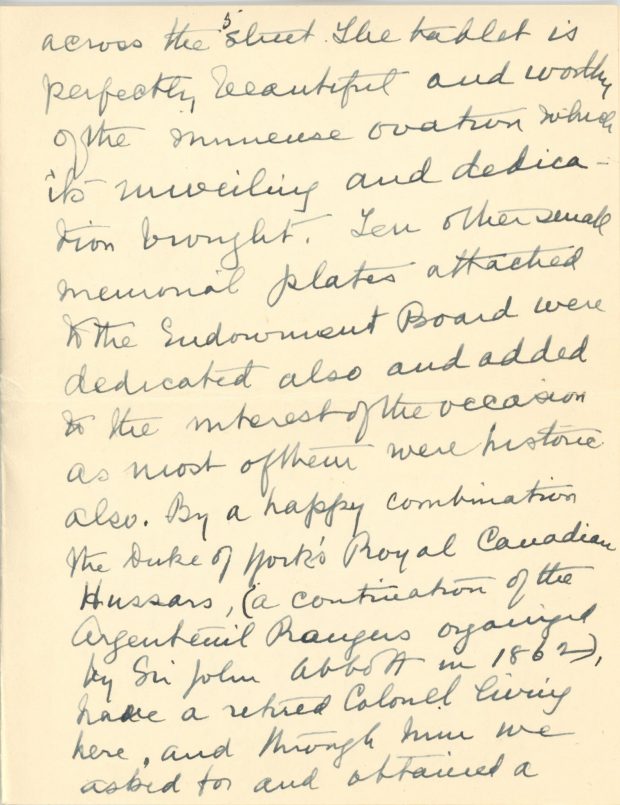 5
across the street. The tablet is
perfectly beautiful and worthy
of the immense ovation which
its unveiling and dedica-
tion brought. Ten other small
memorial plates attached
to the Endowment Board were
dedicated also and added
to the interest of the occasion
as most of them were historic
also. By a happy combination
the Duke of York's Royal Canadian
Hussars, (a contination of the
Argenteuil Rangers organized
by Sir John Abbott in 1862),
have a retired Colonel living
here, and through him we
asked for and obtained a